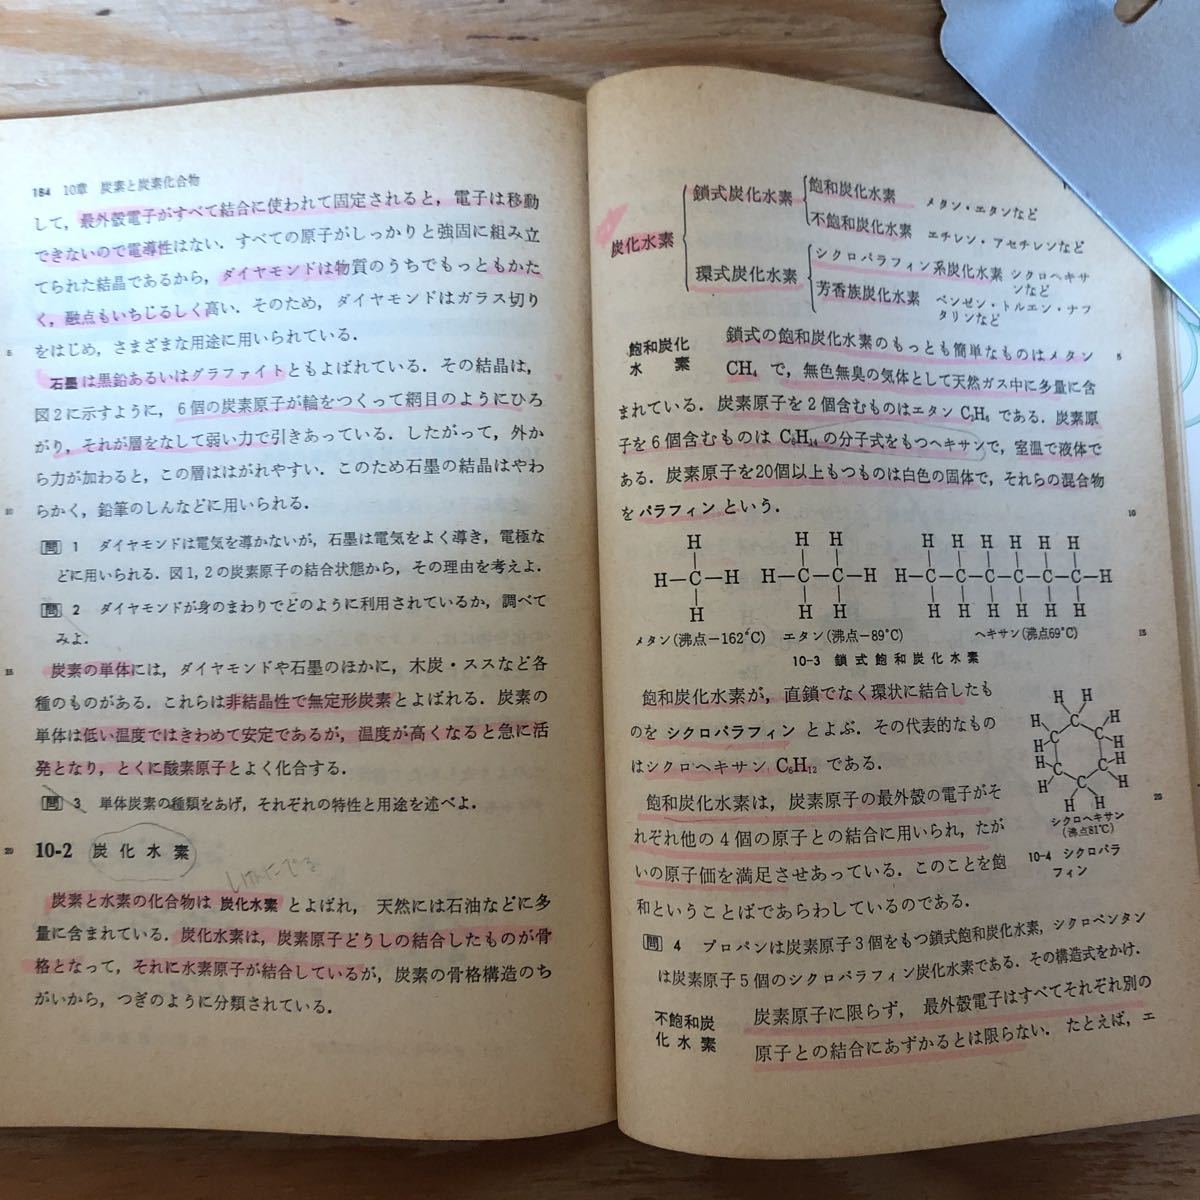 184 10章 炭素と炭素化合物
して，最外殻電子がすべて結合に使われて固定されると，電子は移動
できないので電導性はない．すべての原子がしっかりと強固に組み立
てられた結晶であるから，ダイヤモンドは物質のうちでもっともかた
く，融点もいちじるしく高い．そのため，ダイヤモンドはガラス切り
5 をはじめ，さまざまな用途に用いられている．
石墨は黒鉛あるいはグラファイトともよばれている．その結晶は，
図2に示すように，6個の炭素原子が輪をつくって網目のようにひろ
がり，それが層をなして弱い力で引きあっている．したがって，外か
ら力が加わると，この層ははがれやすい．このため石墨の結晶はやわ
10 らかく，鉛筆のしんなどに用いられる．
問 1 ダイヤモンドは電気を導かないが，石墨は電気をよく導き，電極な
どに用いられる．図1,2の炭素原子の結合状態から，その理由を考えよ．
問 2 ダイヤモンドが身のまわりでどのように利用されているか，調べて
みよ．
15 炭素の単体には，ダイヤモンドや石墨のほかに，木炭・ススなど各
種のものがある．これらは非結晶性で無定形炭素とよばれる．炭素の
単体は低い温度ではきわめて安定であるが，温度が高くなると急に活
発となり，とくに酸素原子とよく化合する．
問 3 単体炭素の種類をあげ，それぞれの特性と用途を述べよ．
20 10-2 炭化水素
炭素と水素の化合物は 炭化水素 とよばれ，天然には石油などに多
量に含まれている．炭化水素は，炭素原子どうしの結合したものが骨
格となって，それに水素原子が結合しているが，炭素の骨格構造のち
がいから，つぎのように分類されている．
炭化水素
鎖式炭化水素
飽和炭化水素 メタン・エタンなど
不飽和炭化水素 エチレン・アセチレンなど
環式炭化水素
シクロパラフィン系炭化水素 シクロヘキサ
ンなど
芳香族炭化水素 ベンゼン・トルエン・ナフ
タリンなど
飽和炭化
水素
鎖式の飽和炭化水素のもっとも簡単なものはメタン 5
CH₄ で，無色無臭の気体として天然ガス中に多量に含
まれている．炭素原子を2個含むものはエタン C₂H₆ である．炭素原
子を6個含むものは C₆H₁₄ の分子式をもつヘキサンで，室温で液体で
ある．炭素原子を20個以上もつものは白色の固体で，それらの混合物
を パラフィン という． 10
H H H H H H H H H
H—C—H H—C—C—H H—C—C—C—C—C—C—H
H H H H H H H H H
メタン(沸点−162°C) エタン(沸点−89°C) ヘキサン(沸点69°C) 15
10-3 鎖式飽和炭化水素
飽和炭化水素が，直鎖でなく環状に結合したも
のを シクロパラフィン とよぶ．その代表的なもの
はシクロヘキサン C₆H₁₂ である．
飽和炭化水素は，炭素原子の最外殻の電子がそ 20
れぞれ他の4個の原子との結合に用いられ，たが
いの原子価を満足させあっている．このことを飽
和ということばであらわしているのである．
H H
H C H
H C C H
H C C H
H C H
H H
シクロヘキサン
(沸点81°C)
10-4 シクロパラ
フィン
問 4 プロパンは炭素原子3個をもつ鎖式飽和炭化水素，シクロペンタン
は炭素原子5個のシクロパラフィン炭化水素である．その構造式をかけ．
不飽和炭
化水素
炭素原子に限らず，最外殻電子はすべてそれぞれ別の
原子との結合にあずかるとは限らない．たとえば，エ